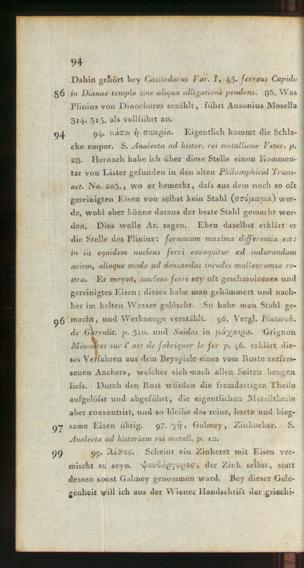 94
Dahin gehört bey Cassiodorus Var. I, 45. ferreus Cupido
86 in Dianae templo sine aliqua alligatione pendens. 86. Was
Plinius von Dinochares erzählt, führt Ausonius Mosella
314. 315. als vollführt an.
94 94. κάτω ἡ σκωρία. Eigentlich kommt die Schla-
cke empor. S. Analecta ad histor. rei metallicae Veter. p.
28. Hernach habe ich über diese Stelle einen Kommen-
tar von Lister gefunden in den alten Philosophical Trans-
act. No. 203., wo er bemerkt, daſs aus dem noch so oft
gereinigten Eisen von selbst kein Stahl (στόμωμα) wer-
de, wohl aber könne daraus der beste Stahl gemacht wer-
den. Dies wolle Ar. sagen. Eben daselbst erklärt er
die Stelle des Plinius: fornacum maxima differentia est:
in iis equidem nucleus ferri excoquitur ad indurandam
aciem, alioque modo ad densandas incudes malleorumve ro-
stra. Er meynt, nucleus ferri sey oft geschmolzenes und
gereinigtes Eisen: dieses habe man gehämmert und nach-
her im kalten Wasser gelöscht. So habe man Stahl ge-
96 macht, und Werkzeuge verstählt. 96. Vergl. Plutarch.
de Garrulit. p. 510. und Suidas in μάχαιρα. Grignon
Mémoires sur l'art de fabriquer le fer p. 46. erklärt die-
ses Verfahren aus dem Beyspiele eines vom Roste zerfres-
senen Anchers, welcher sich nach allen Seiten beugen
lieſs. Durch den Rost würden die fremdartigen Theile
aufgelöſst und abgeführt, die eigentlichen Metalltheile
aber conzentrirt, und so bleibe das reine, harte und bieg-
97 same Eisen übrig. 97. γῆ. Galmey, Zinkocher. S.
Analecta ad historiam rei metall. p. 12.
99 99. λίθος. Scheint ein Zinkerst mit Eisen ver-
mischt zu seyn. ψευδάργυρος, der Zink selbst, statt
dessen sonst Galmey genommen ward. Bey dieser Gele-
genheit will ich aus der Wiener Handschrift der griechi-